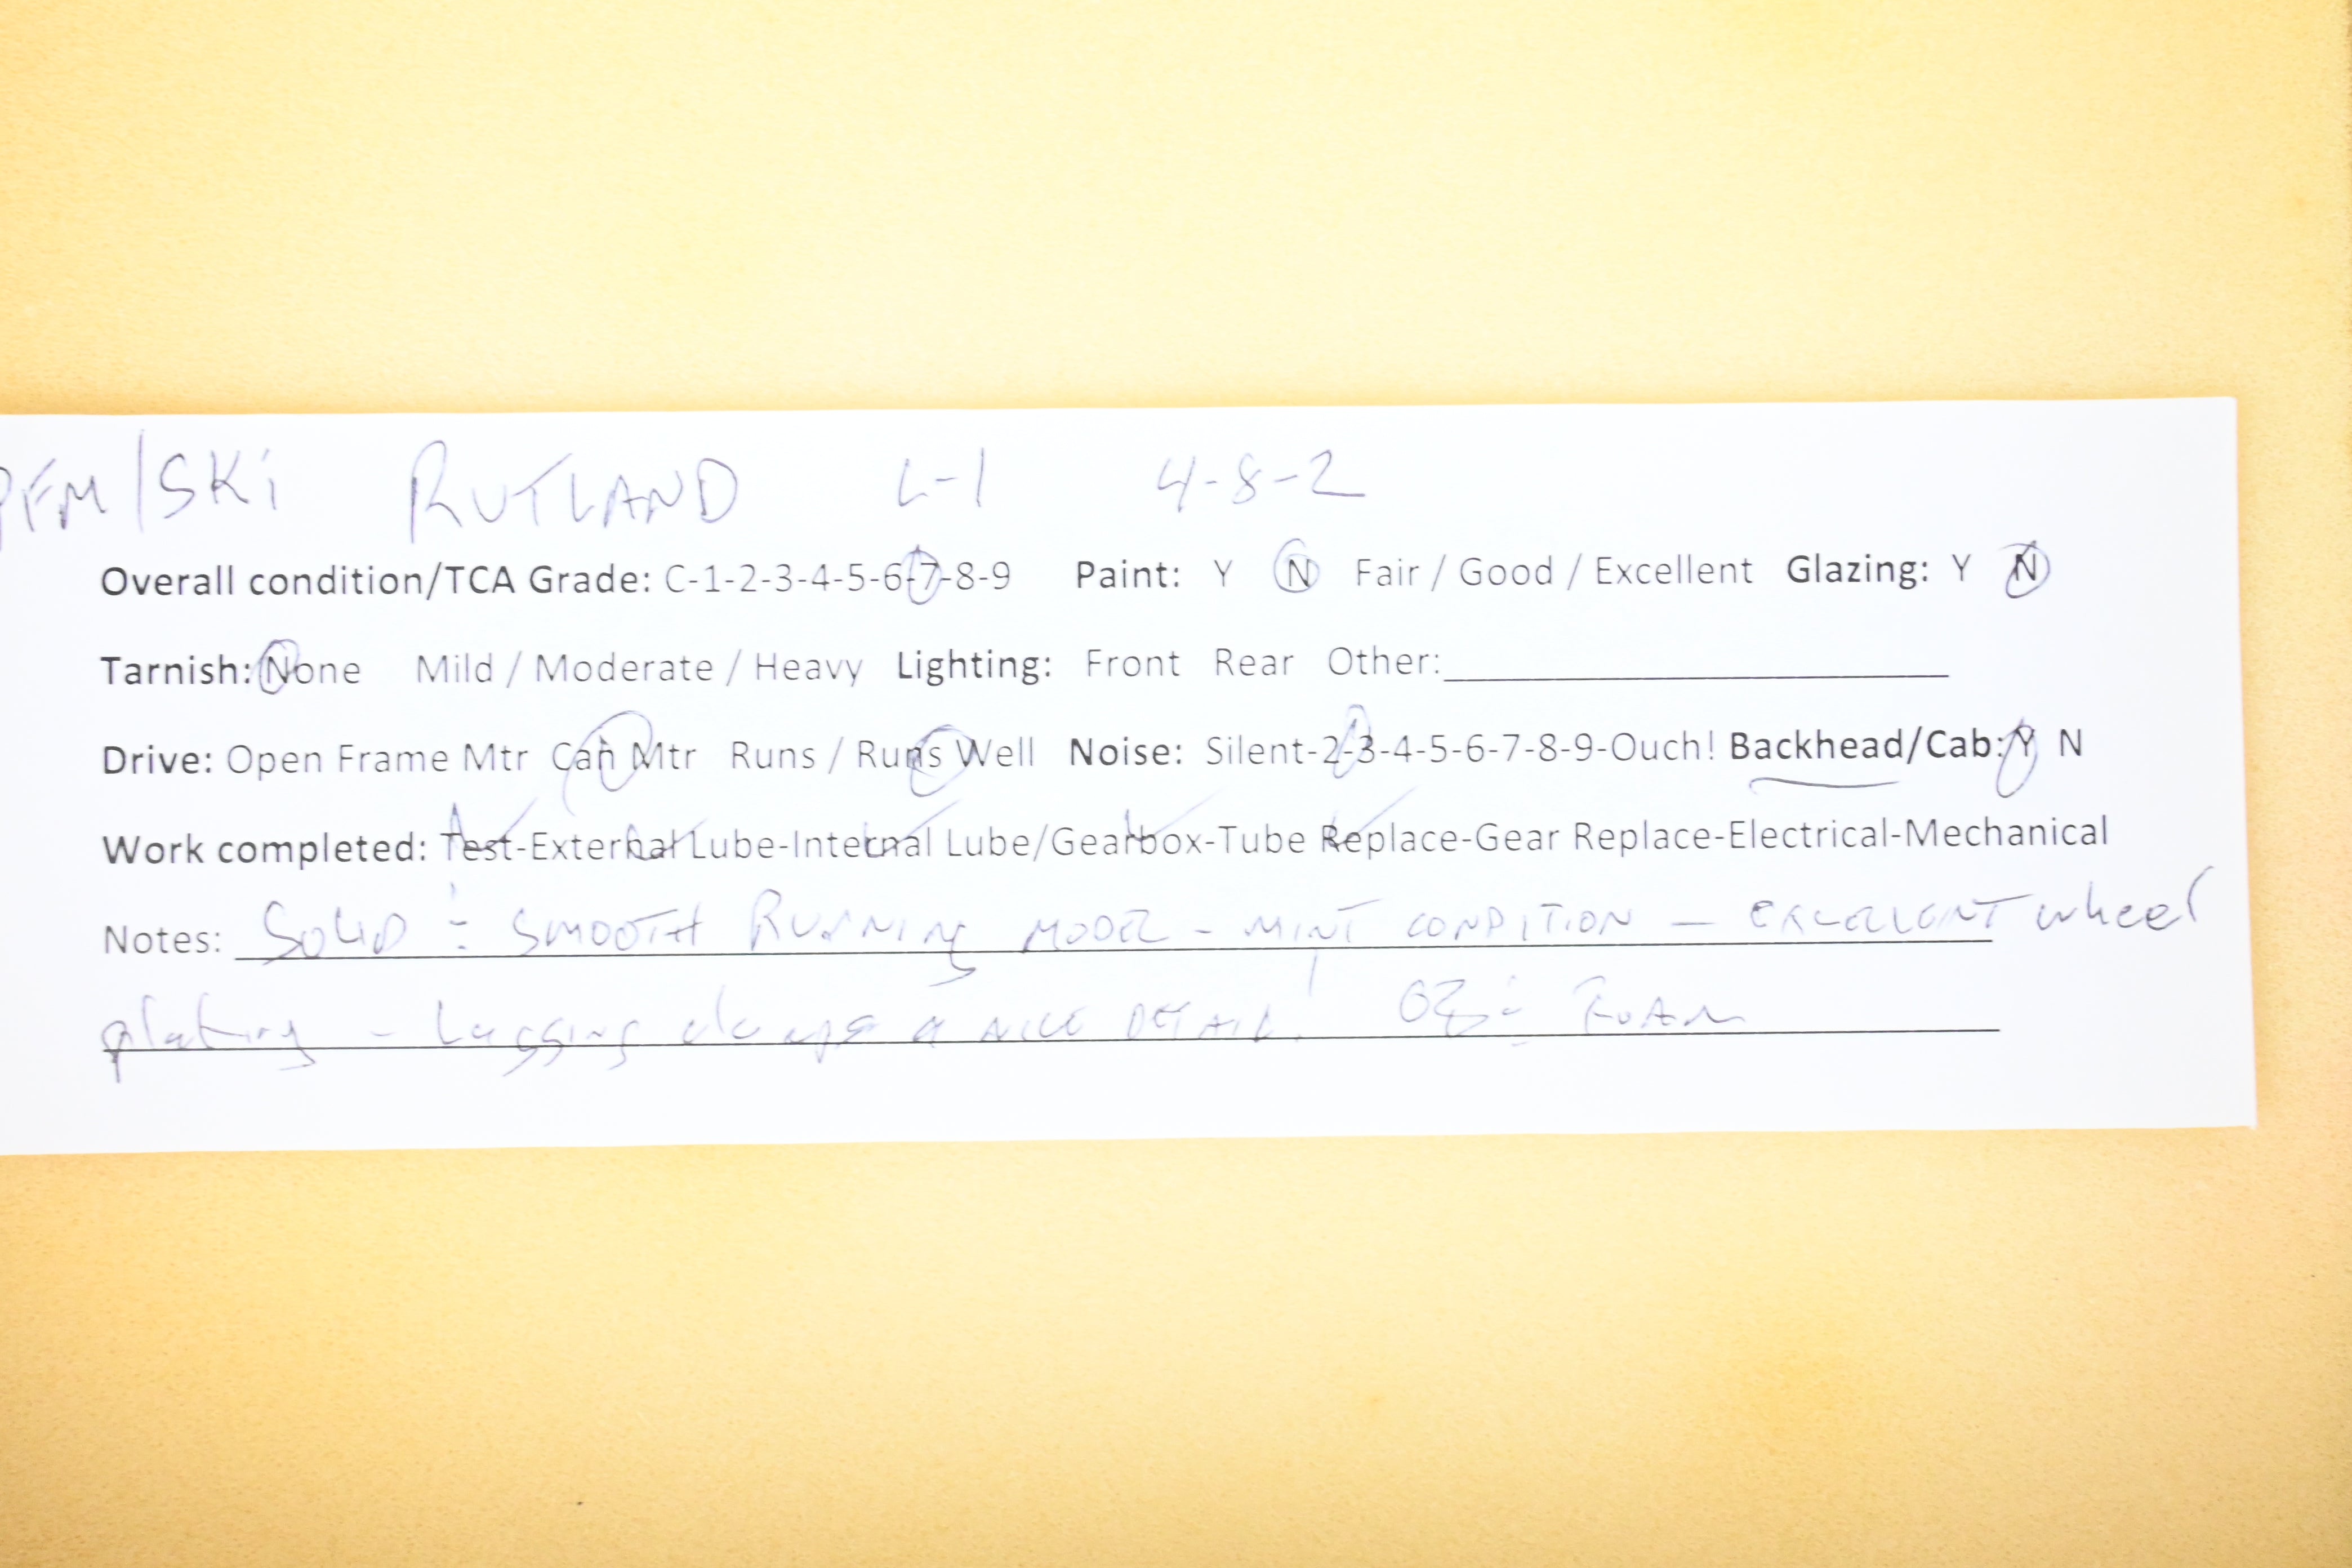 PFM/SKi RUTLAND L-1 4-8-2
Overall condition/TCA Grade: C-1-2-3-4-5-6-7-8-9 Paint: Y N Fair / Good / Excellent Glazing: Y N
Tarnish: None Mild / Moderate / Heavy Lighting: Front Rear Other:
Drive: Open Frame Mtr Can Mtr Runs / Runs Well Noise: Silent-2-3-4-5-6-7-8-9-Ouch! Backhead/Cab: Y N
Work completed: Test-External Lube-Internal Lube/Gearbox-Tube Replace-Gear Replace-Electrical-Mechanical
Notes: SOLID SMOOTH RUNNING MODEL - MINT CONDITION - EXCELLENT wheel
plating - Lagging clamps a NICE DETAIL!